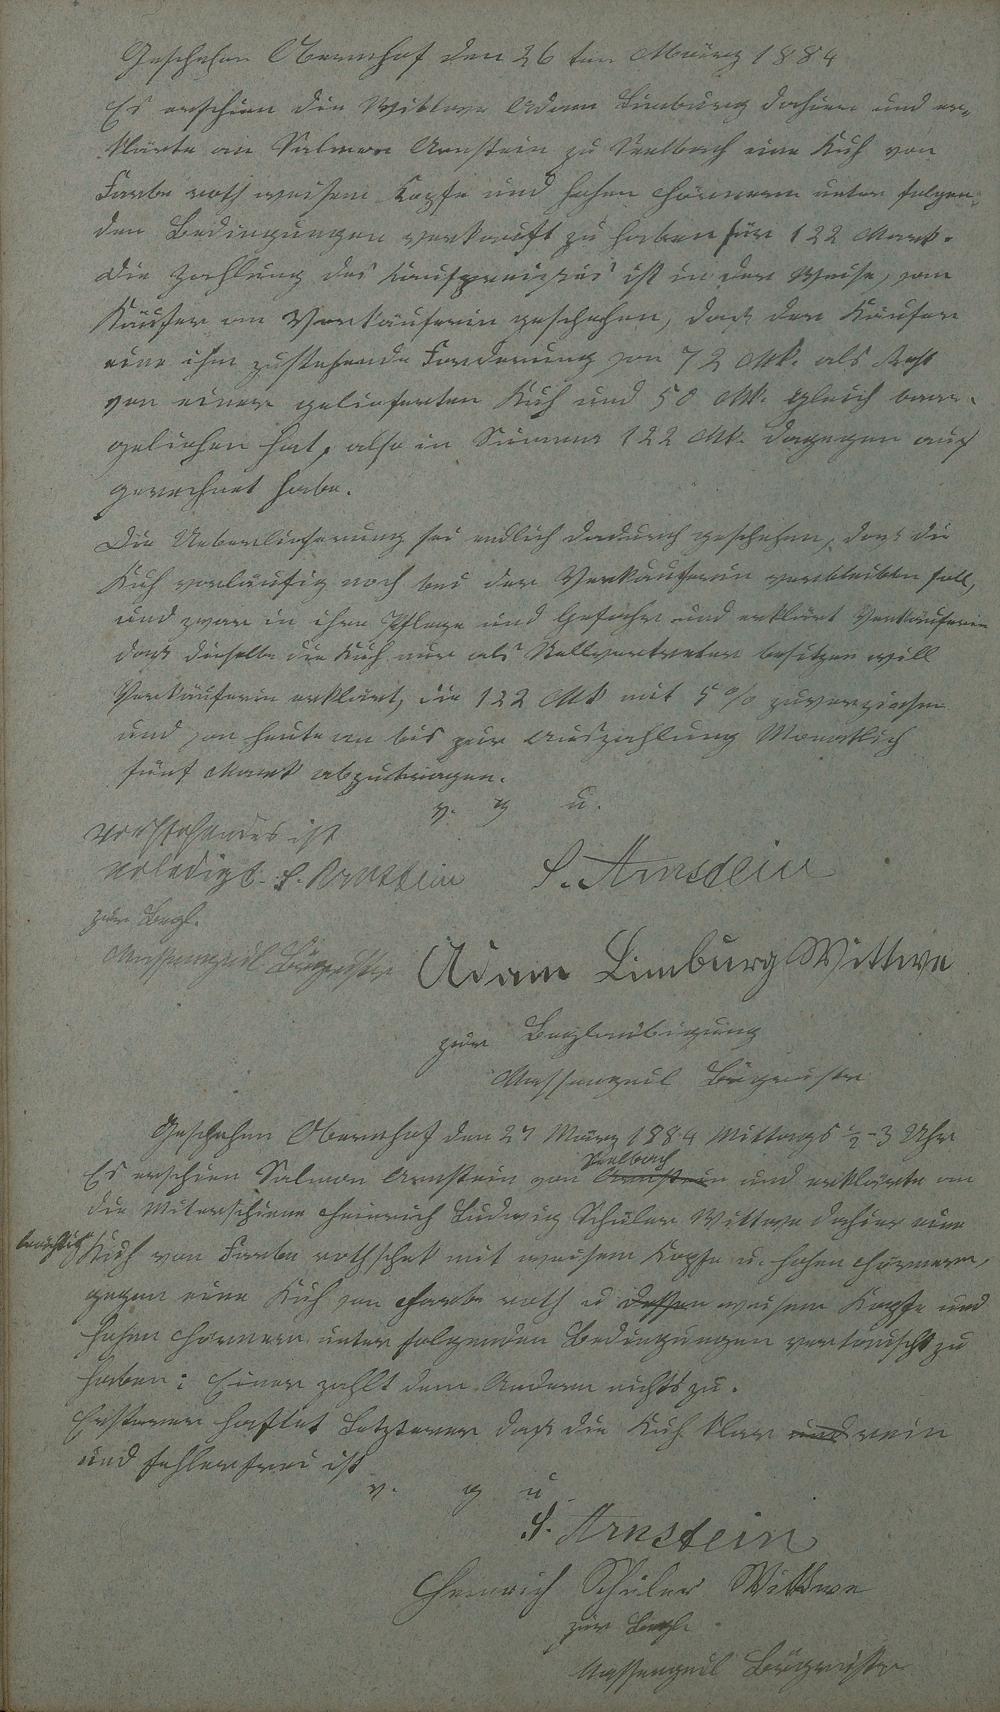 Geschehen Obernhof den 26 ten Maerz 1884
Es erschien die Wittwe Adam Limburg dahier und er-
klärte an Salmon Arnstein zu Seelbach eine Kuh von
Farbe roth weisem Kopfe und hohen Hörnern unter folgen-
den Bedingungen verkauft zu haben für 122 Mark.
Die Zahlung des Kaufpreises ist in der Weise, vom
Käufer an Verkäuferin geschehen, daß der Käufer
eine ihm zustehende Forderung von 72 Mk. als Rest
von einer gelieferten Kuh und 50 Mk. gleich baar
geliehen hat, also in Summa 122 Mk. dagegen auf
gerechnet habe.
Die Ueberlieferung sei endlich dadurch geschehen, daß die
Kuh vorläufig noch bei der Verkäuferin verbleiben soll,
und zwar in ihre Pflege und Gefahr und erklärt Verkäuferin
daß dieselbe die Kuh nur als Stellvertreter besitzen will
Verkäuferin erklärt, die 122 Mk mit 5 % zuverzinsen
und von heute an bis zur Auszahlung Monatlich
fünf Mark abzutragen.
v. g u.
Vorstehendes ist
erledigt. S. Arnstein S. Arnstein
zur Begl.
Massengeil Bürgmstr Adam Limburg Wittwe
zur Beglaubigung
Massengeil Bürgmeister
Geschehen Obernhof den 27 März 1884 Mittags ½-3 Uhr
Es erschien Salmon Arnstein von Arnstein Seelbach und erklärte an
die Miterschiene Heinrich Ludwig Schüler Wittwe dahier eine
trächtige Kuh von Farbe rothschek mit weisem Kopfe u. hohen Hörnern,
gegen eine Kuh von Farbe roth u dessen weisem Kopfe und
hohen Hörnern unter folgenden Bedingungen vertauscht zu
haben: Einer zahlt dem Andern nichts zu.
Ersterer haftet Letzterer daß die Kuh klar und rein
und fehlerfrei ist
v. g u
S. Arnstein
Heinrich Schüler Wittwe
zur Begl.
Massengeil Bürgmeister